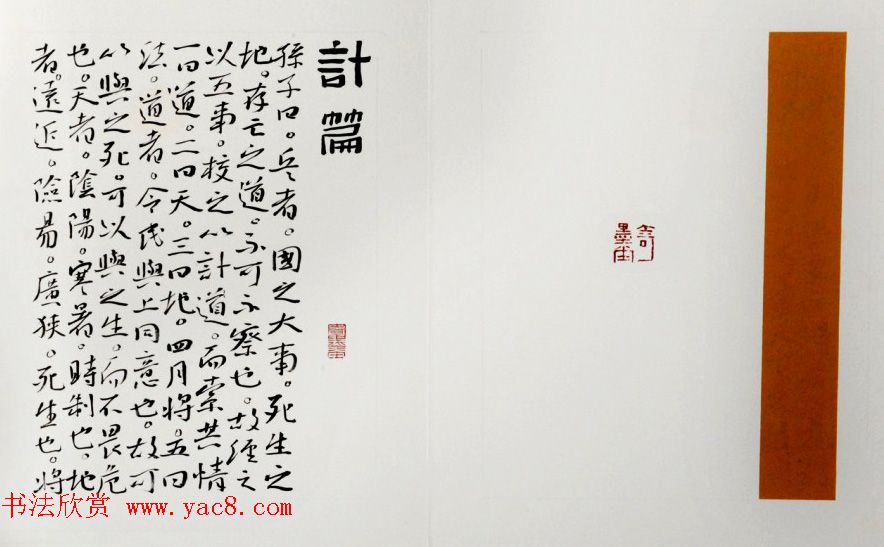 計篇
孫子曰。兵者。國之大事。死生之
地。存亡之道。不可不察也。故經之
以五事。校之以計道。而索其情
一曰道。二曰天。三曰地。四曰將。五曰
法。道者。令民與上同意也。故可
以與之死。可以與之生。而不畏危
也。天者。陰陽。寒暑。時制也。地
者。遠近。險易。廣狹。死生也。將
书法欣赏 www.yac8.com